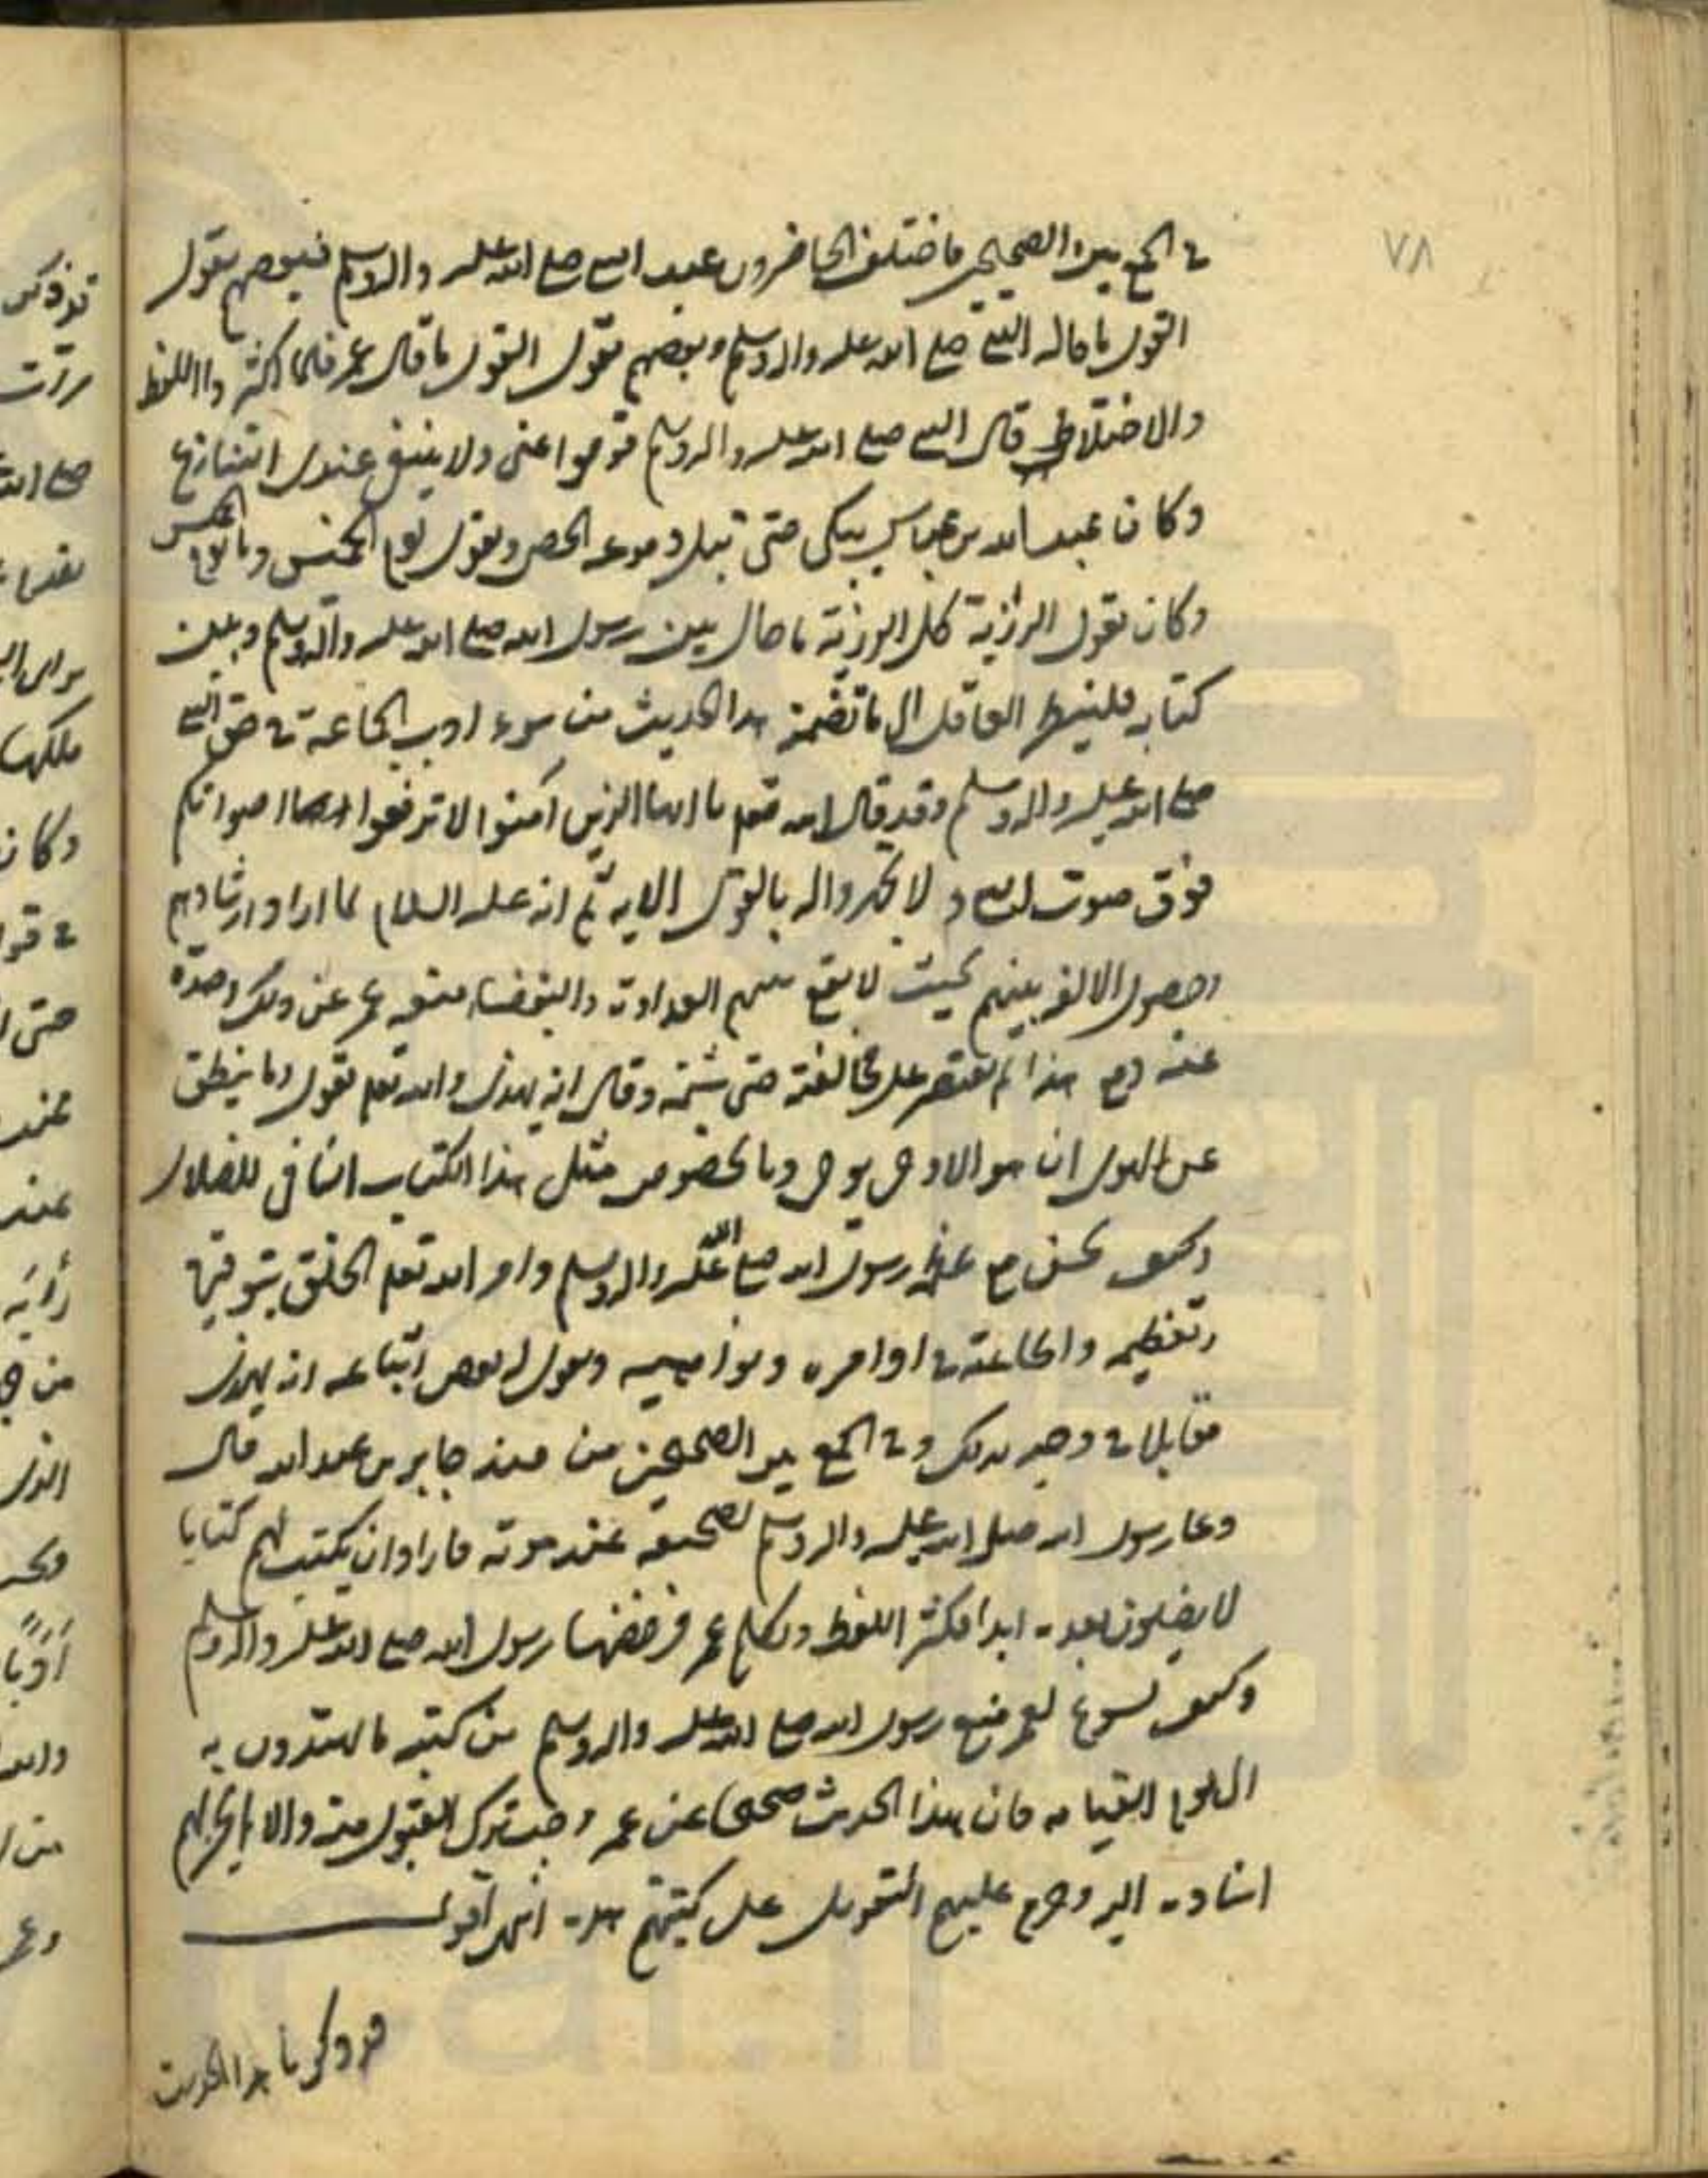 ٧٨
في الجمع بين الصحيحين فاختلف الحاضرون عند النبي صلى الله عليه واله وسلم فبعضهم يقول
القول ما قاله النبي صلى الله عليه واله وسلم وبعضهم يقول القول ما قال عمر فلما اكثروا اللغط
والاختلاط قال النبي صلى الله عليه واله وسلم قوموا عني ولا ينبغي عندي التنازع
وكان عبد الله بن عباس يبكي حتى تبل دموعه الحصى ويقول يوم الخميس وما يوم الخميس
وكان يقول الرزية كل الرزية ما حال بين رسول الله صلى الله عليه واله وسلم وبين
كتابه فلينظر العاقل الى ما تضمنه هذا الحديث من سوء ادب الجماعة في حق النبي
صلى الله عليه واله وسلم وقد قال الله تعلم يا ايها الذين آمنوا لا ترفعوا اصواتكم
فوق صوت النبي ولا تجهروا له بالقول الاية ثم انه عليه السلام لما اراد ارشادهم
وحصول الالفة بينهم بحيث لا يقع بينهم العداوة والبغضاء منعه عمر عن ذلك وصده
عنه ومع هذا لم يقتصر على مخالفته حتى شتمه وقال انه يهذى والله تعلم يقول وما ينطق
عن الهوى ان هو الا وحي يوحى وبالخصوص مثل هذا الكتاب النافي للضلال
وكيف يحسن مع عظمة رسول الله صلى الله عليه واله وسلم وامر الله تعلم الخلق بتوقيره
وتعظيمه واطاعته في اوامره ونواهيه ويقول له بعض اتباعه انه يهذى
مقابلا في وجهه بذلك وفي الجمع بين الصحيحين من مسند جابر بن عبد الله قال
دعا رسول الله صلى الله عليه واله وسلم بصحيفة عند موته فاراد ان يكتب لهم كتابا
لا يضلون بعده ابدا فكثر اللغط وتكلم عمر فرفضها رسول الله صلى الله عليه واله وسلم
وكيف يسوغ لعمر منع رسول الله صلى الله عليه واله وسلم من كتبه ما يهتدون به
الى يوم القيامة فان هذا الحديث صحيحا عن عمر وجب ترك القبول منه والا لم يحل لهم
اسناده اليه وحرم عليهم التعويل على كتبهم هذه انتهى اقول
قد ذكرنا هذا الحديث